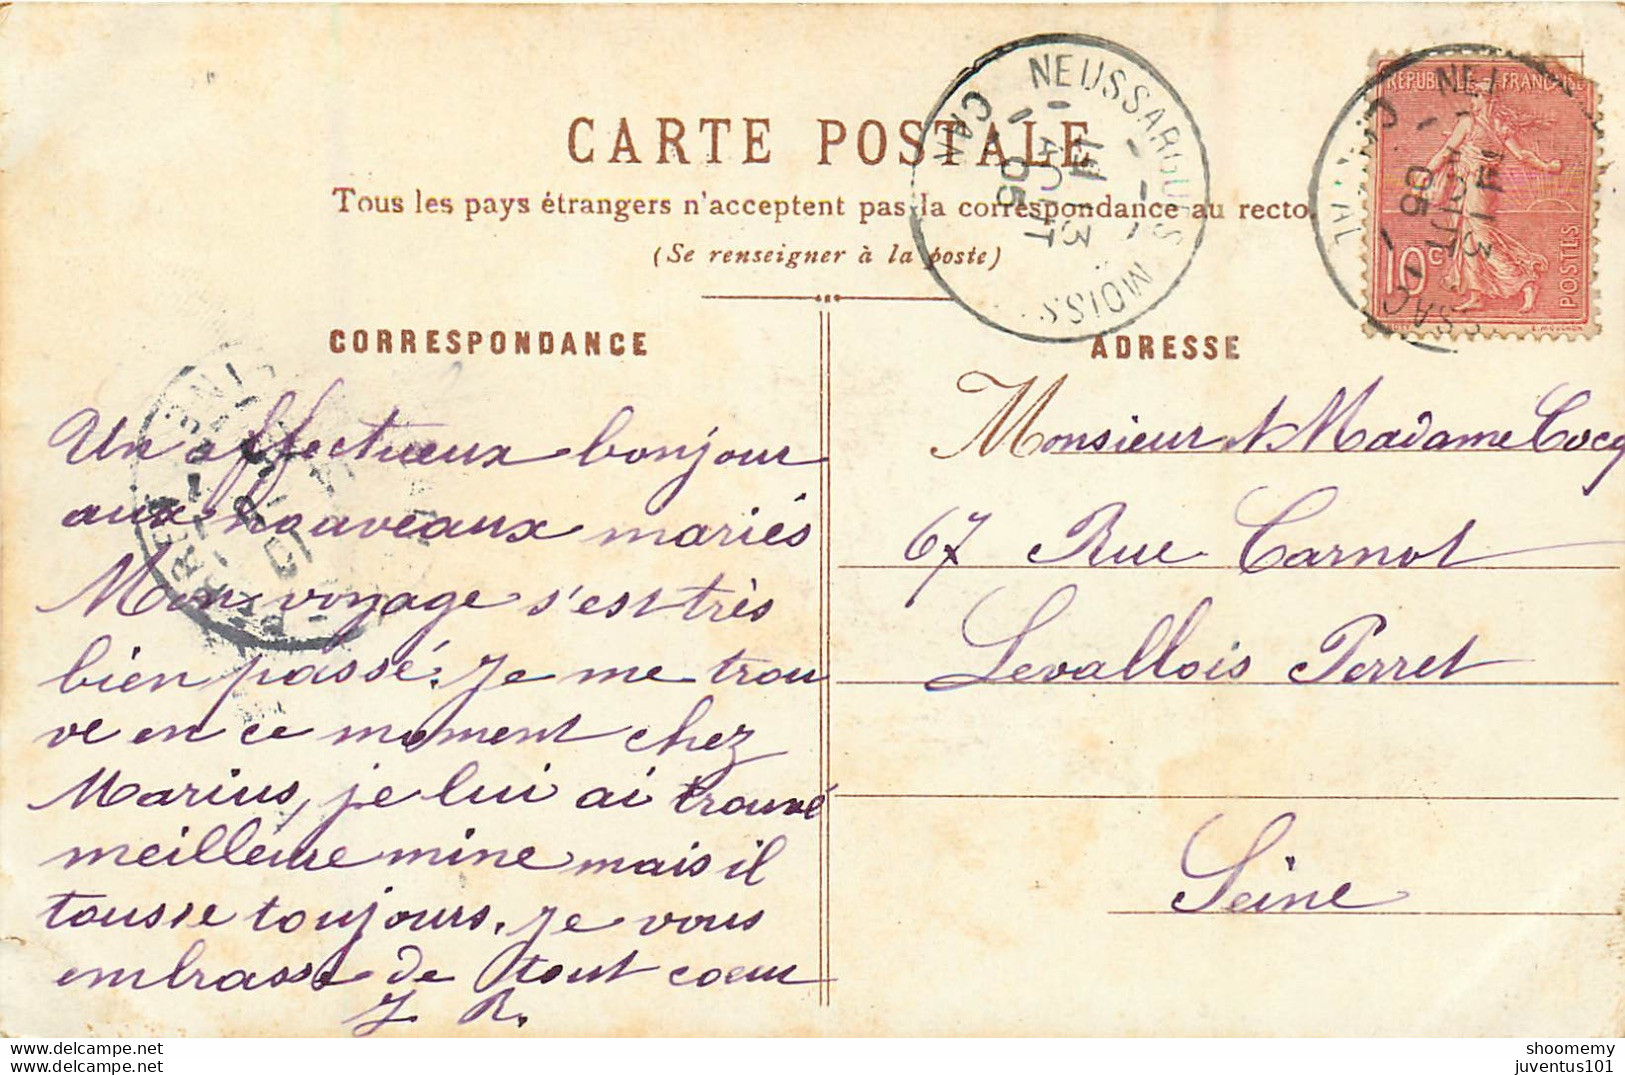 CARTE POSTALE
Tous les pays étrangers n'acceptent pas la correspondance au recto
(Se renseigner à la poste)
NEUSSARGUES MOISSAC
CANTAL
13
AOUT
05
REPUBLIQUE FRANÇAISE
10c
POSTES
CORRESPONDANCE
Un affectueux bonjour
aux nouveaux mariés
Mon voyage s'est très
bien passé. Je me trou
ve en ce moment chez
Marius, je lui ai trouvé
meilleure mine mais il
tousse toujours. Je vous
embrasse de tout coeur
J R.
ADRESSE
Monsieur & Madame Cocq
67 Rue Carnot
Levallois Perret
Seine
shoomemy
juventus101